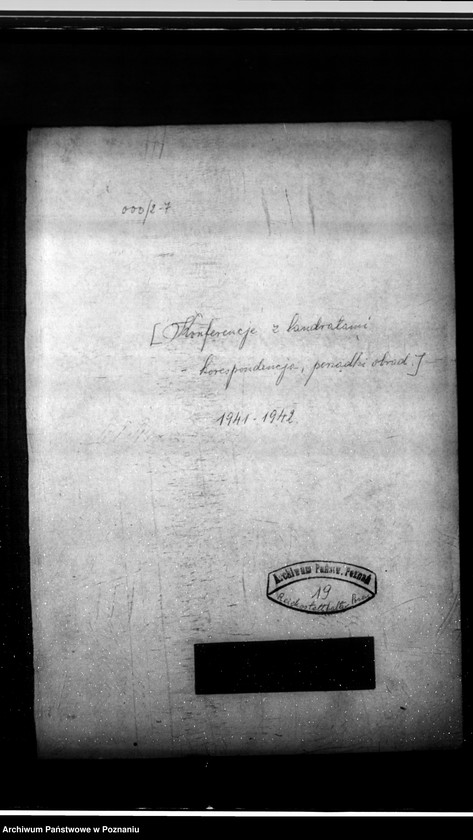 000/2-7
[Konferencje z landratami
- korespondencja, porządki obrad]
1941-1942
Archiwum Państw. Poznań
19
Reichsstatthalter Posen
Archiwum Państwowe w Poznaniu